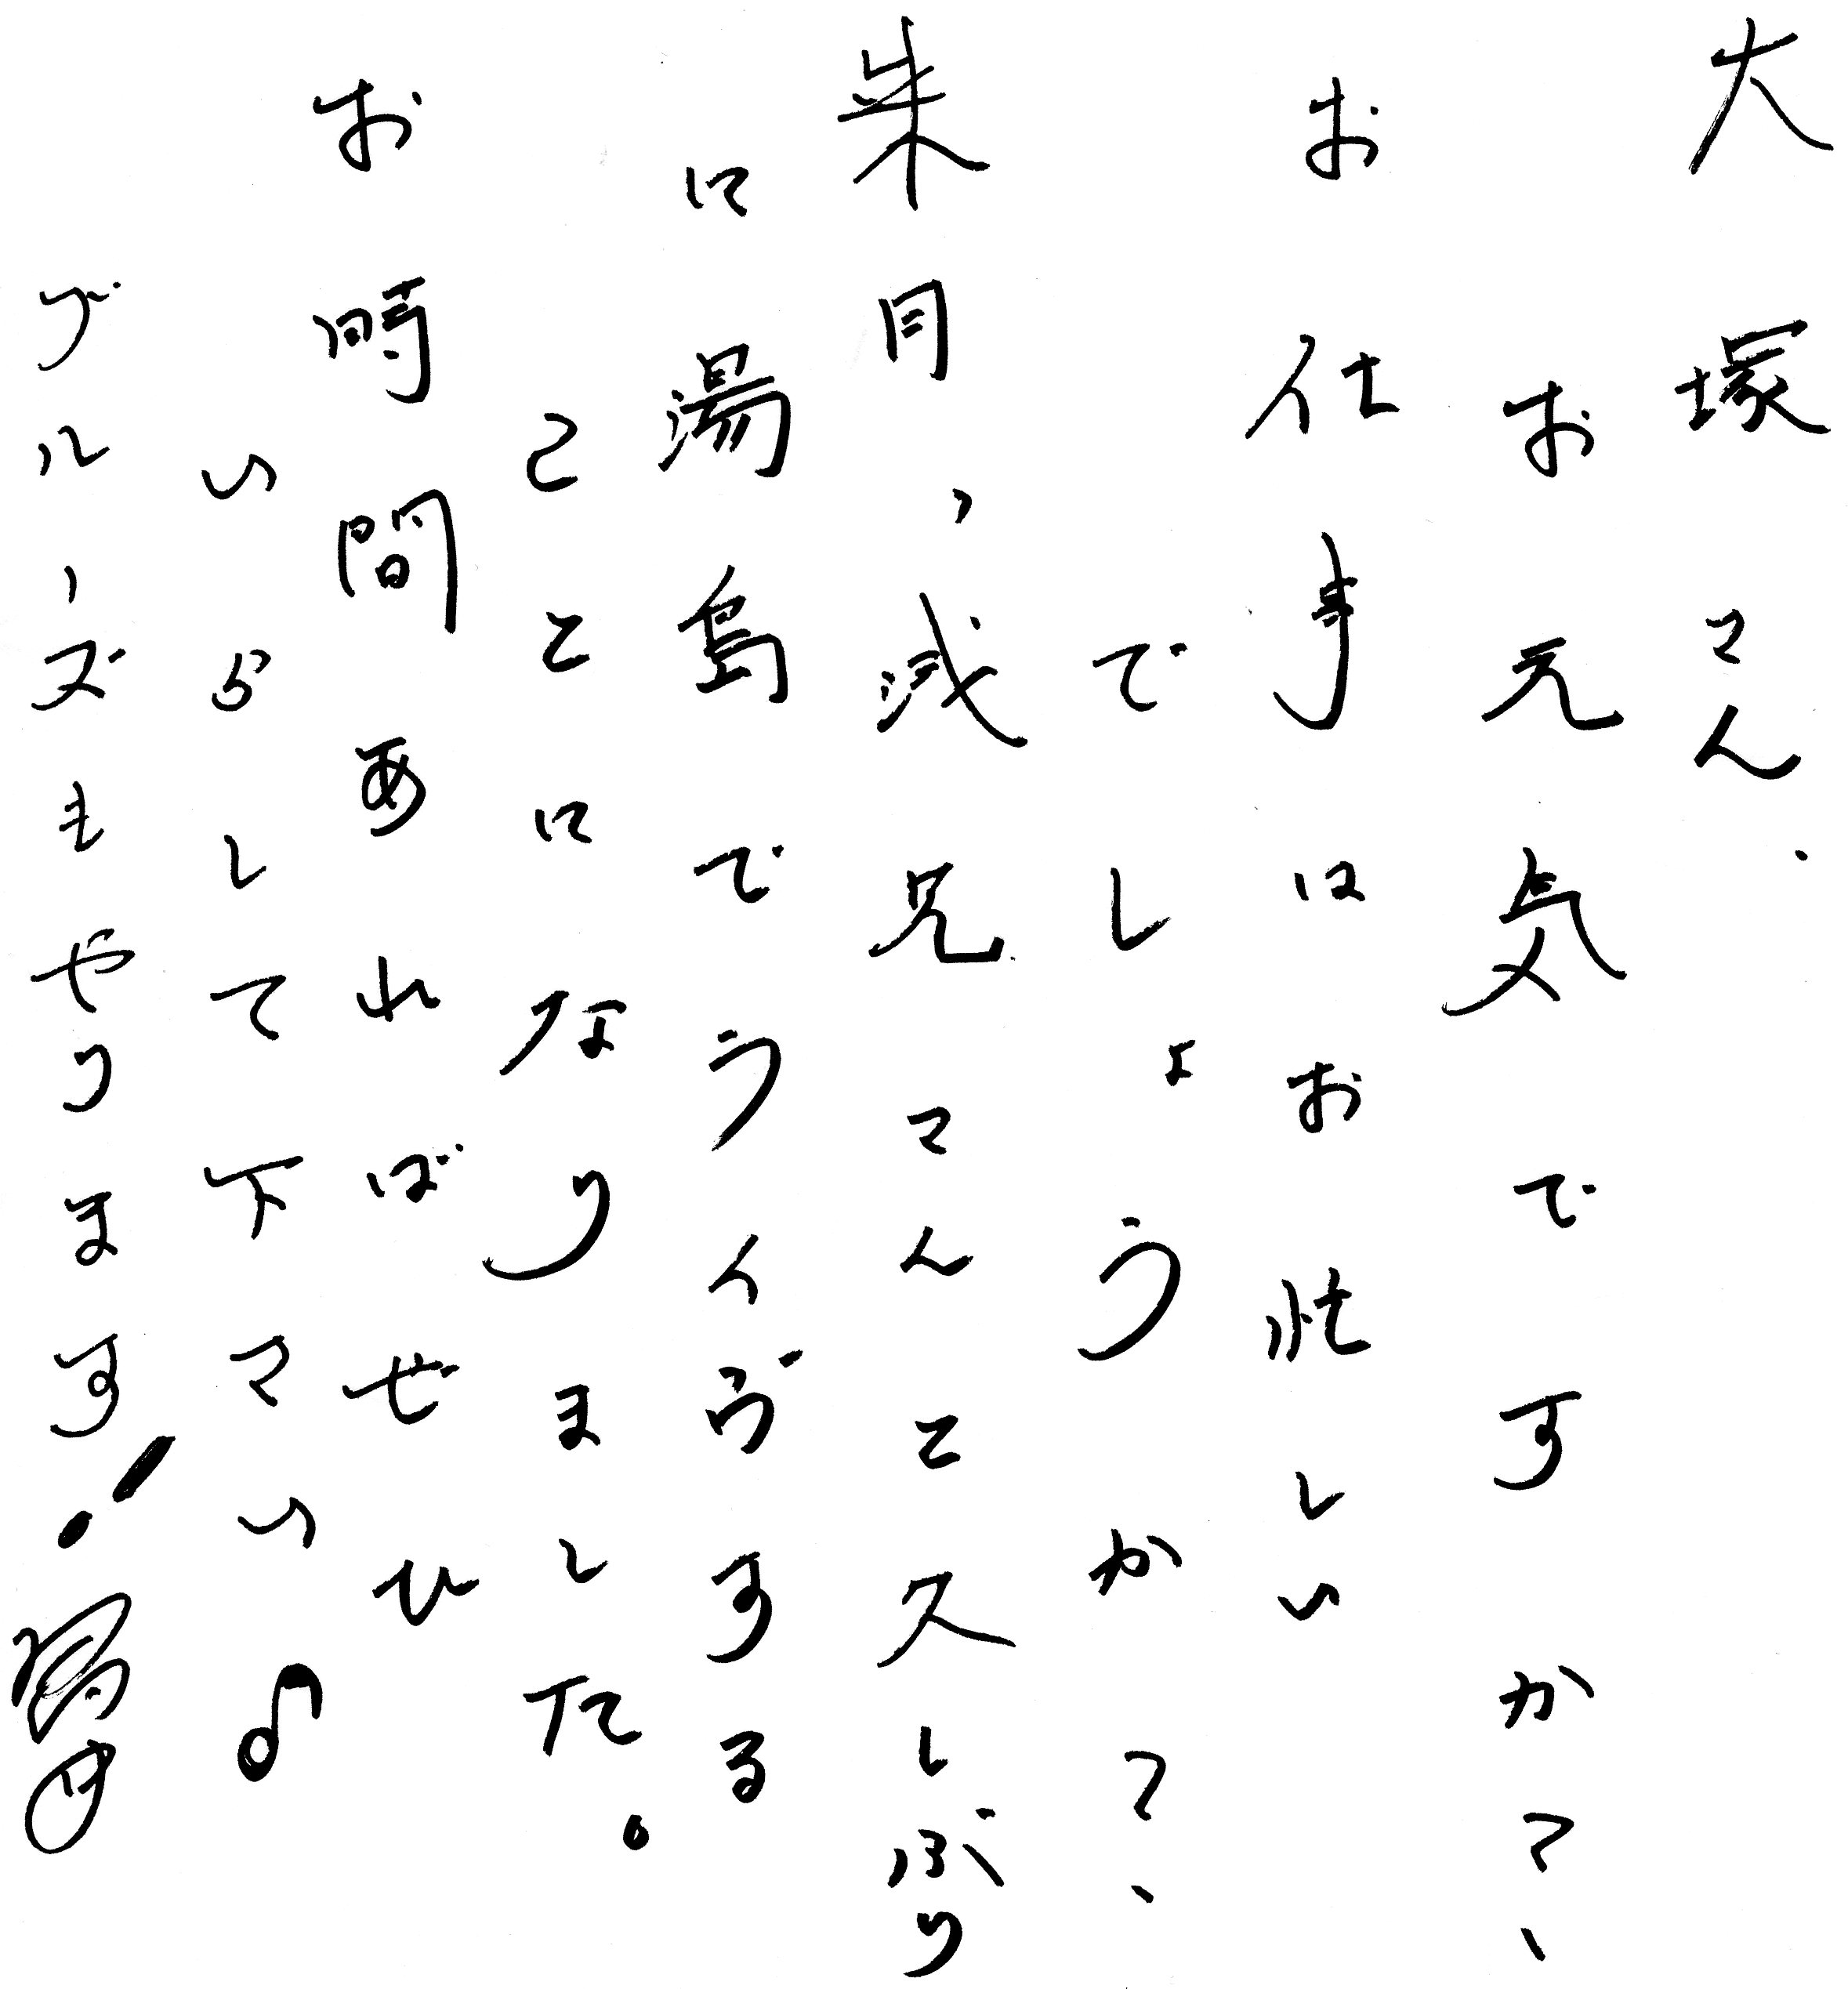 大塚さん、
お元気ですか?、
お仕事はお忙しい
でしょうか?、
来月、浅兄さんと久しぶり
に湯島でライヴする
ことになりました。
お時間あればぜひ
いらして下さい♪
ブルースもやります!